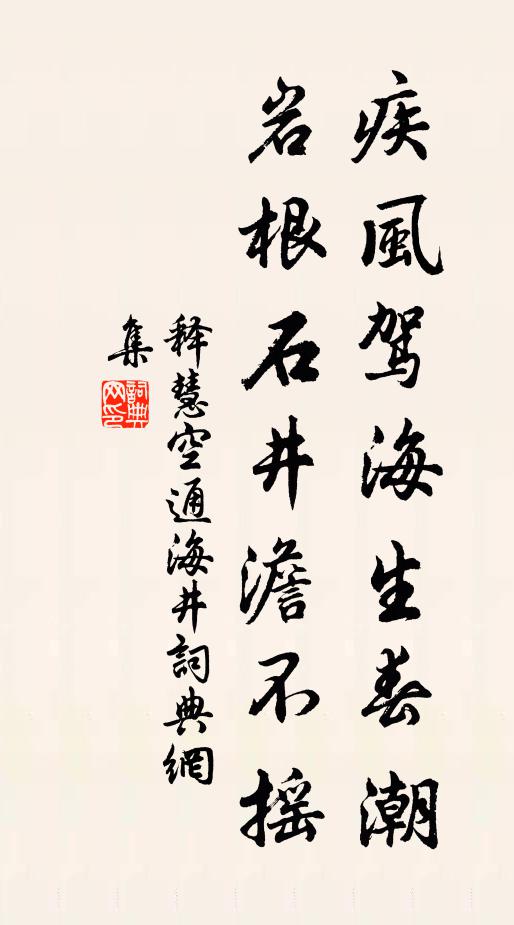 疾風驾海生春潮
岩根石井澹不摇
释慧空通海井詞典網
集
詞典
网印